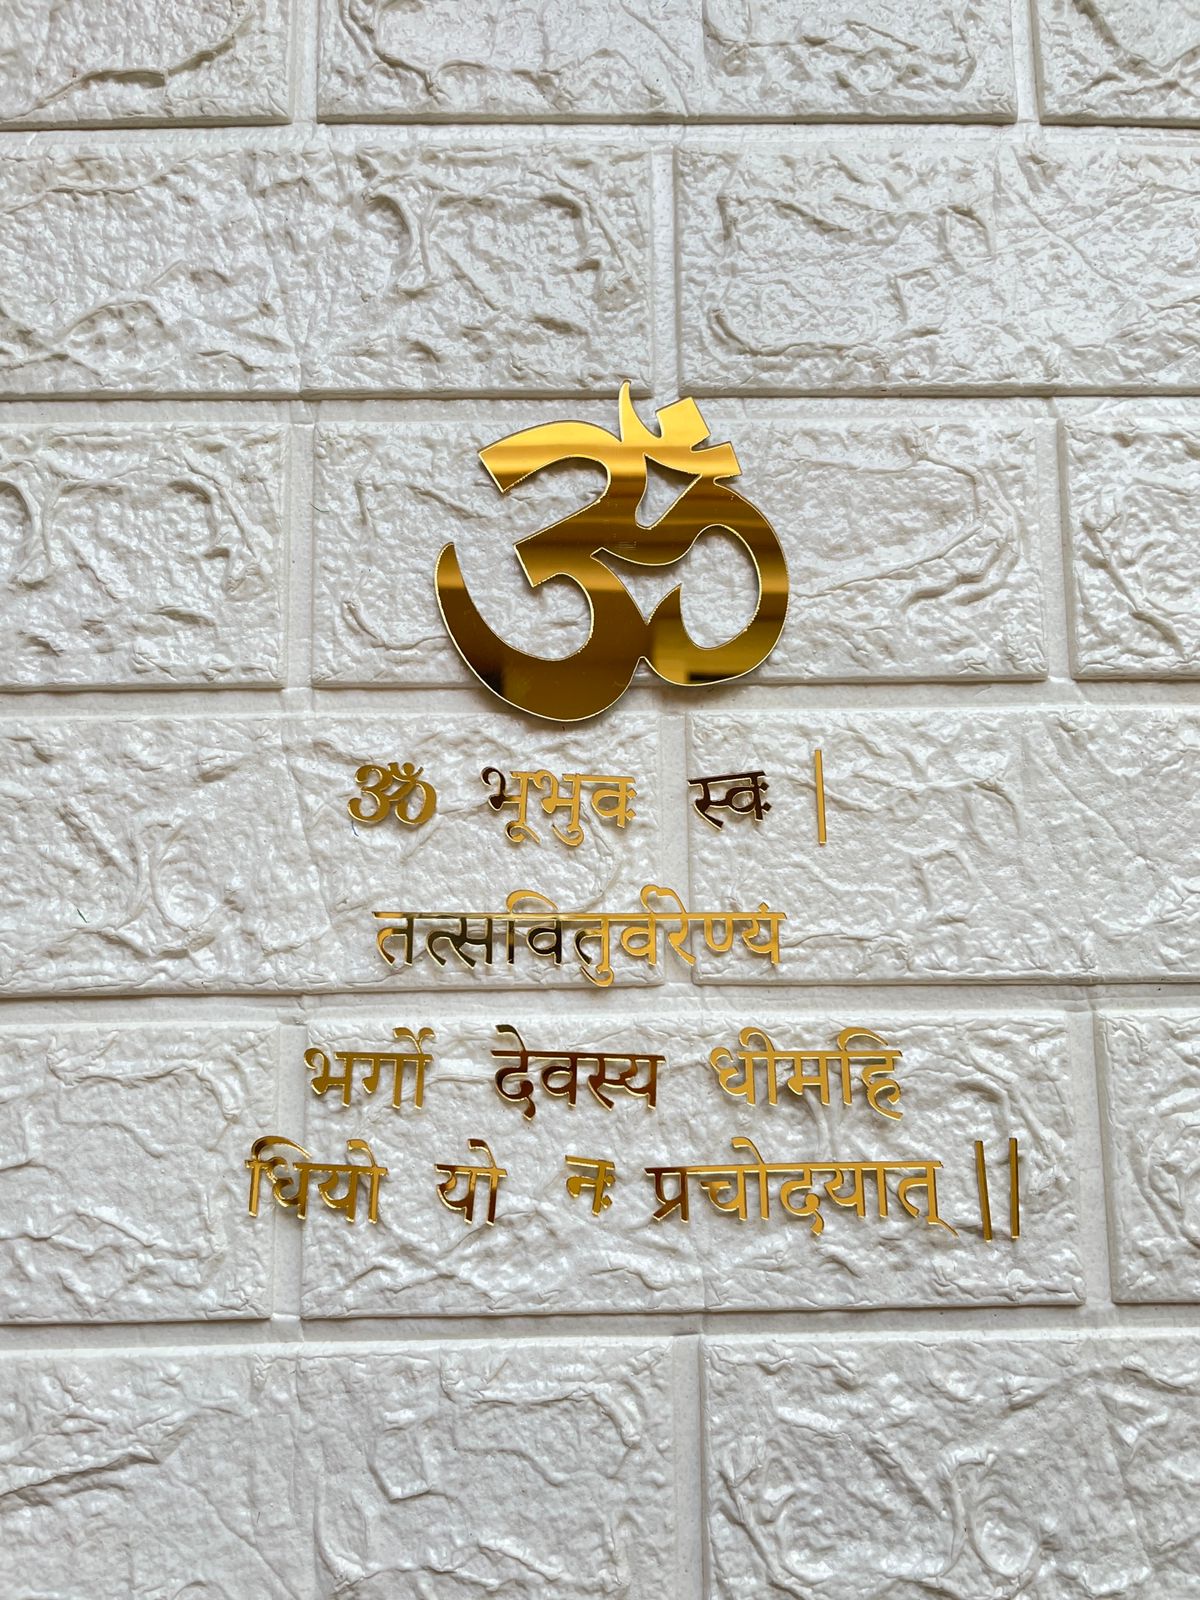 ॐ
ॐ भूर्भुवः स्वः |
तत्सवितुर्वरेण्यं
भर्गो देवस्य धीमहि
धियो यो नः प्रचोदयात् ||